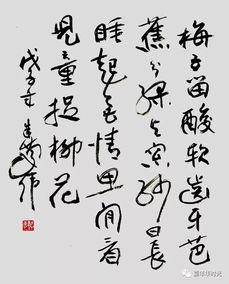 梅子留酸软齿牙芭
蕉分绿与窗纱日长
睡起无情思闲看
儿童捉柳花
戊子年
嘉年华时光